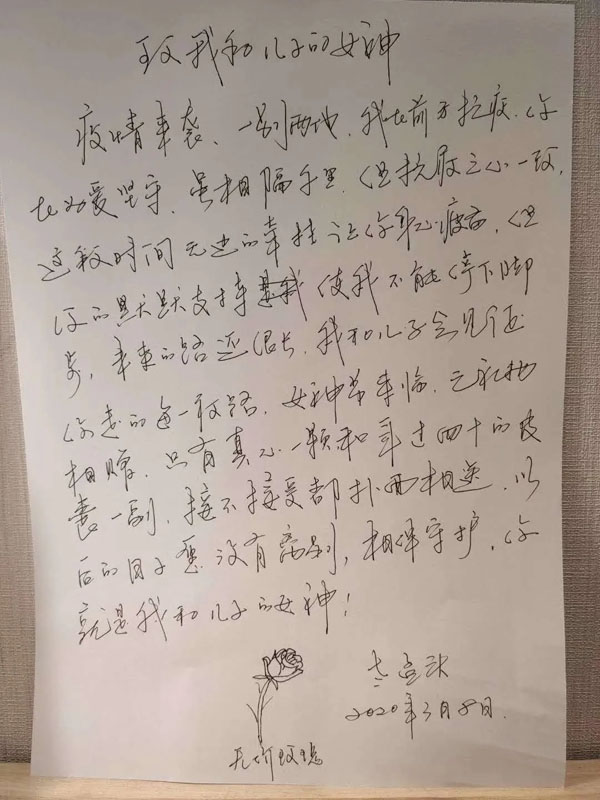 致我和儿子的女神
疫情来袭、一别两地,我在前方抗疫,你
在为爱坚守,虽相隔千里,但抗疫之心一致,
这段时间无边的牵挂让你身心疲惫,但
你的默默支持 使我不能停下脚
步,未来的路还很长,我和儿子会见证
你走的每一段路,女神节来临,无礼物
相赠,只有真心一颗和年过四十的皮
囊一副,接不接受都扑面相送,以
后的日子愿没有离别,相伴守护,你
就是我和儿子的女神!
2020年3月8日.
无价玫瑰